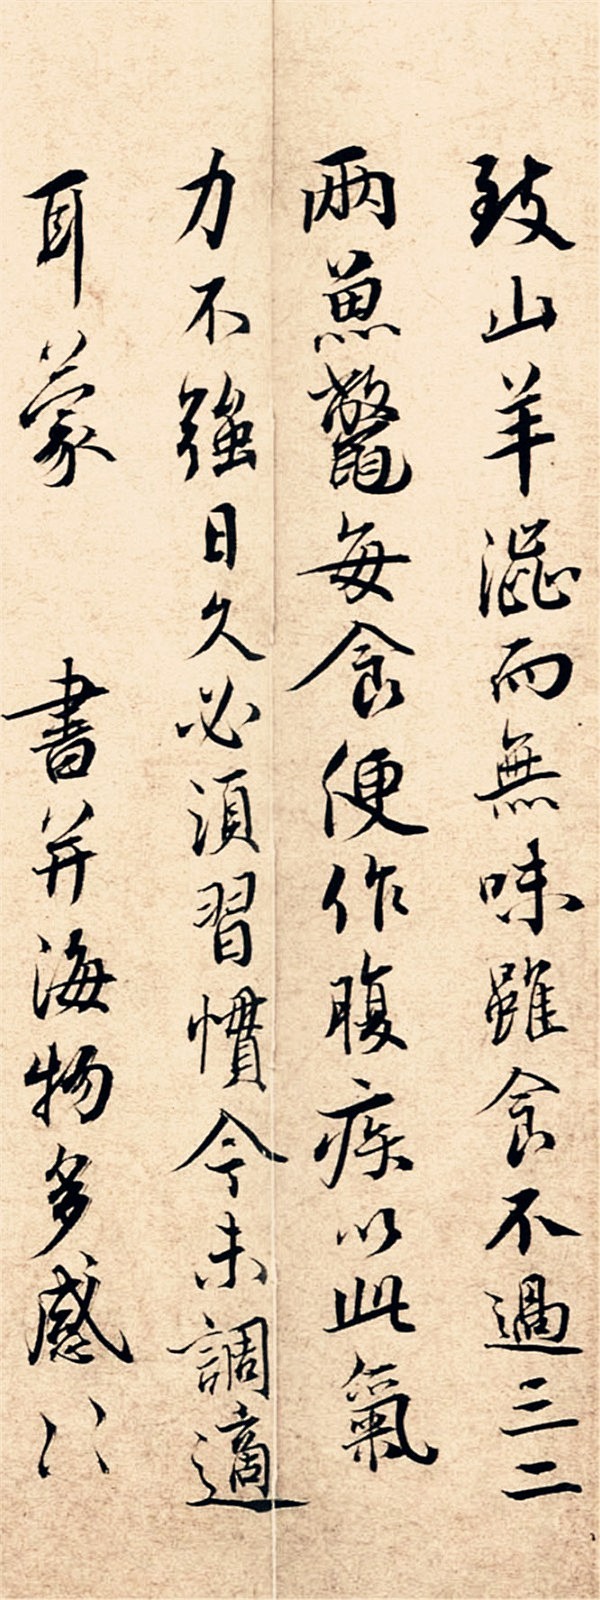 致山羊澀而無味雖食不過三二
兩魚鼈每食便作腹疾以此氣
力不強日久必須習慣今未調適
耳蒙 書并海物多感〻